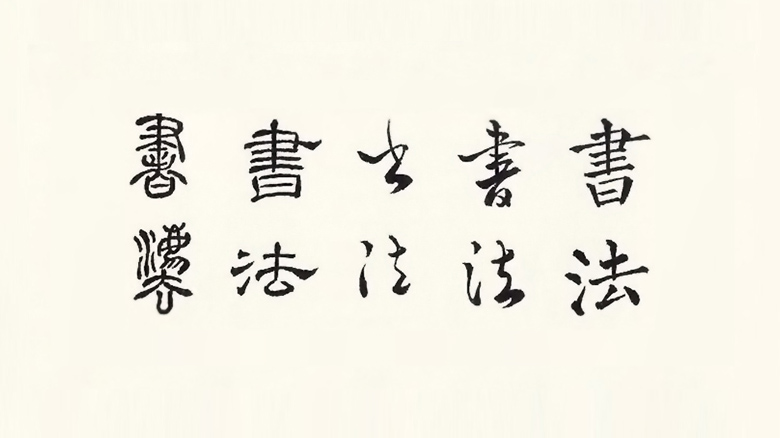 書法
書法
书法
書法
書法